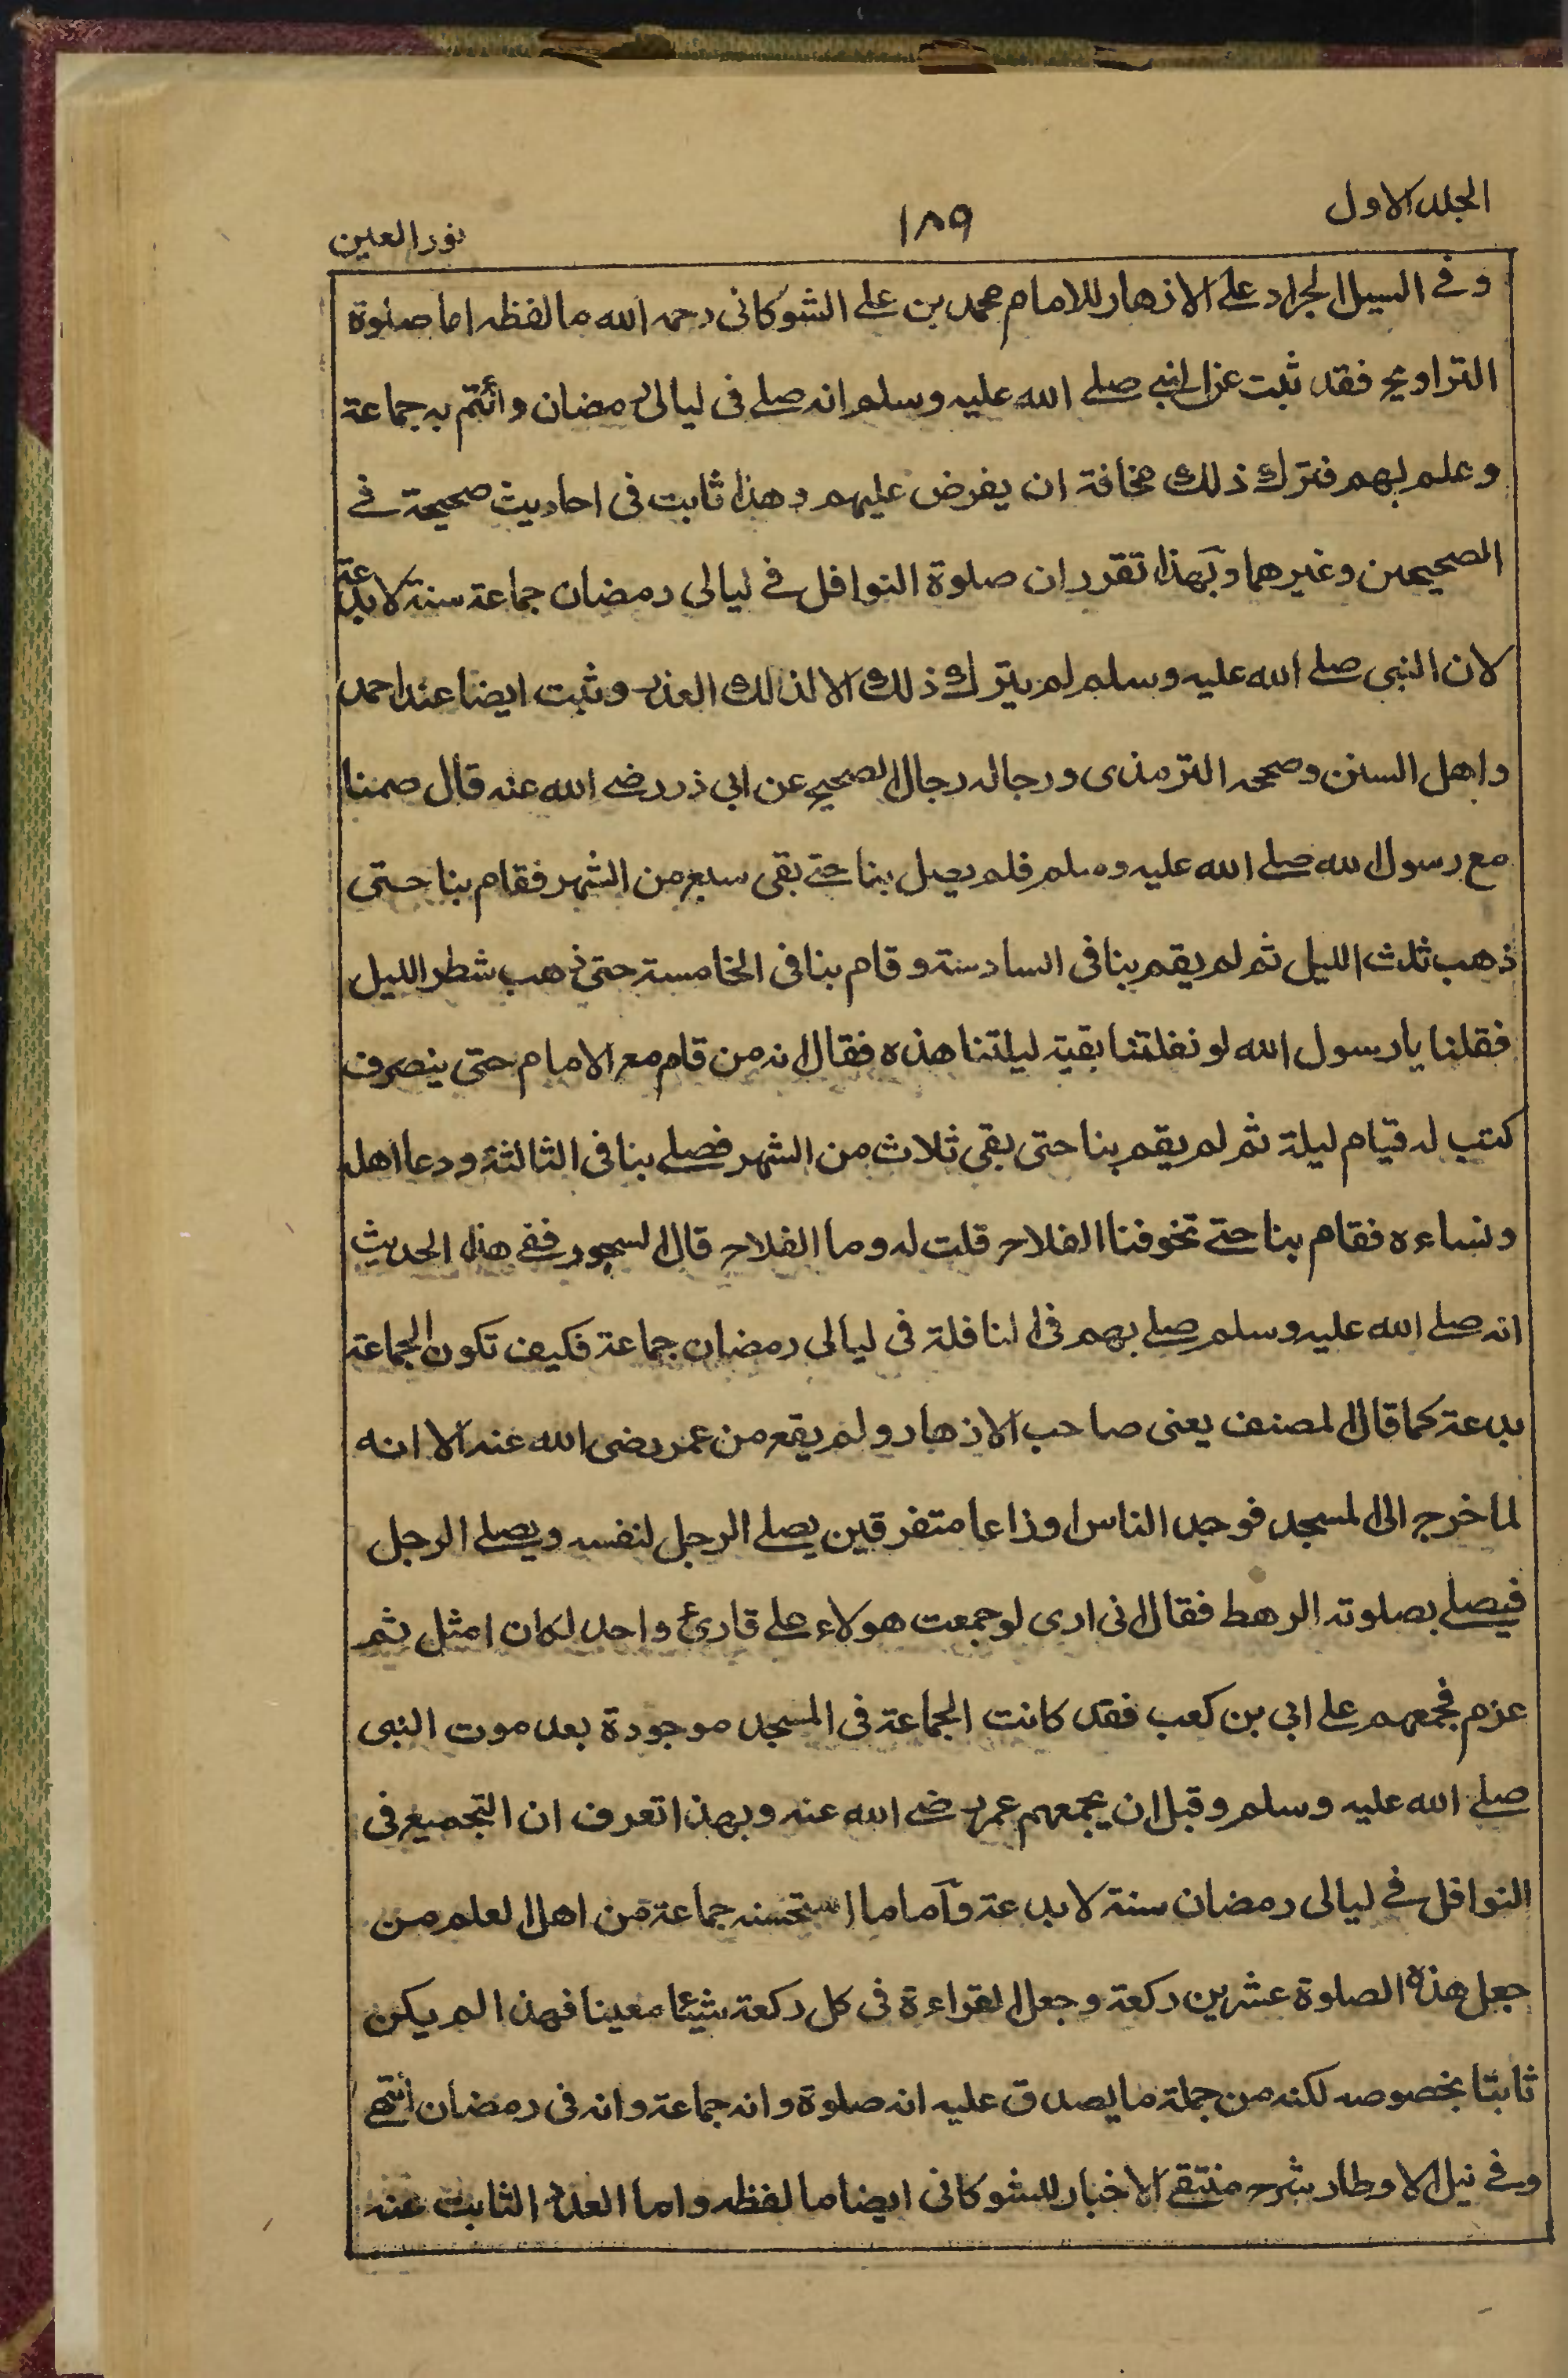 الجلد الاول
١٨٩
نور العين
وفے السيل الجرار علے الازهار للامام محمد بن علے الشوكانى رحمه الله ما لفظه اما صلوة
التراويح فقد ثبت عن النبے صلے الله عليه وسلم انه صلے فى ليالى رمضان وأئتم به جماعة
وعلم بهم فترك ذلك مخافة ان يفرض عليهم وهذا ثابت فى احاديث صحيحة فے
الصحيحين وغيرهما وبهذا تقرر ان صلوة النوافل فے ليالى رمضان جماعة سنة لا بدعة
لان النبى صلے الله عليه وسلم لم يترك ذلك الا لذلك العذر وثبت ايضا عند احمد
واهل السنن وصححه الترمذى ورجاله رجال الصحيح عن ابى ذر رضے الله عنه قال صمنا
مع رسول الله صلے الله عليه وسلم فلم يصل بنا حتے بقى سبع من الشهر فقام بنا حتى
ذهب ثلث الليل ثم لم يقم بنا فى السادسة وقام بنا فى الخامسة حتى ذهب شطر الليل
فقلنا يا رسول الله لو نفلتنا بقية ليلتنا هذه فقال انه من قام مع الامام حتى ينصرف
كتب له قيام ليلة ثم لم يقم بنا حتى بقى ثلاث من الشهر فصلے بنا فى الثالثة ودعا اهله
ونساءه فقام بنا حتے تخوفنا الفلاح قلت له وما الفلاح قال السحور ففے هذا الحديث
انه صلے الله عليه وسلم صلے بهم فى النافلة فى ليالى رمضان جماعة فكيف تكون الجماعة
بدعة كما قال المصنف يعنى صاحب الازهار ولم يقع من عمر رضى الله عنه الا انه
لما خرج الى المسجد فوجد الناس اوزاعا متفرقين يصلے الرجل لنفسه ويصلے الرجل
فيصلے بصلوته الرهط فقال انى ارى لو جمعت هولاء علے قارئ واحد لكان امثل ثم
عزم فجمعهم علے ابى بن كعب فقد كانت الجماعة فى المسجد موجودة بعد موت النبى
صلے الله عليه وسلم وقبل ان يجمعهم عمر رضے الله عنه وبهذا تعرف ان التجميع فى
النوافل فے ليالى رمضان سنة لا بدعة وأما ما استحسنه جماعة من اهل العلم من
جعل هذه الصلوة عشرين ركعة وجعل القراءة فى كل ركعة شيئا معينا فهذا لم يكن
ثابتا بخصوصه لكنه من جملة ما يصدق عليه انه صلوة وانه جماعة وانه فى رمضان انتهے
وفے نيل الاوطار شرح منتقے الاخبار للشوكانى ايضا ما لفظه واما العدد الثابت عنه